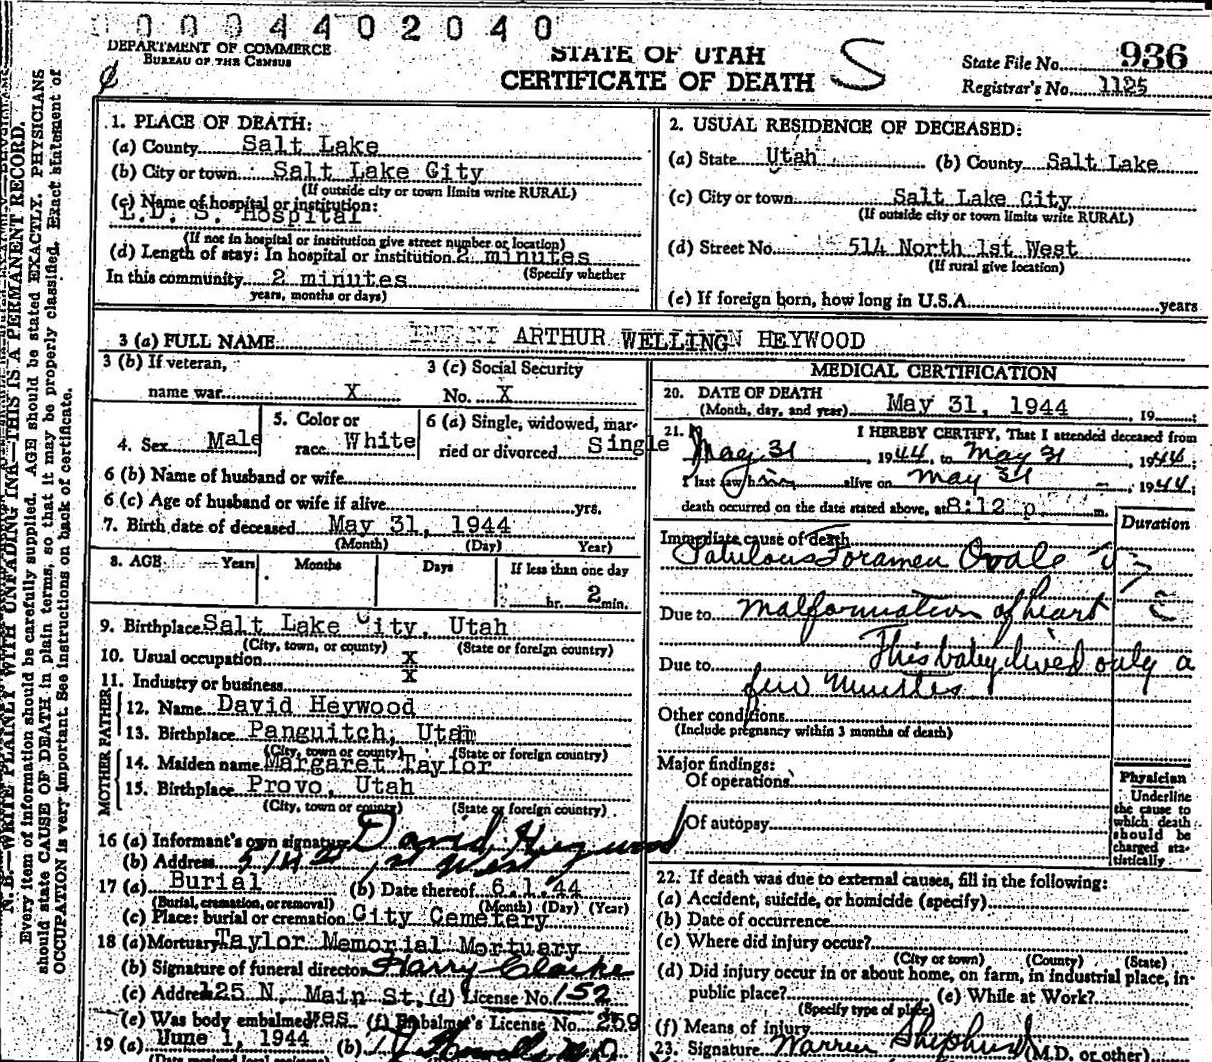 0004402040
DEPARTMENT OF COMMERCE
BUREAU OF THE CENSUS
STATE OF UTAH
CERTIFICATE OF DEATH
S
State File No. 936
Registrar's No. 1125
N. B.—WRITE PLAINLY WITH UNFADING INK—THIS IS A PERMANENT RECORD.
Every item of information should be carefully supplied. AGE should be stated EXACTLY. PHYSICIANS
should state CAUSE OF DEATH in plain terms, so that it may be properly classified. Exact statement of
OCCUPATION is very important. See instructions on back of certificate.
1. PLACE OF DEATH:
(a) County Salt Lake
(b) City or town Salt Lake City
(If outside city or town limits write RURAL)
(c) Name of hospital or institution:
L.D.S. Hospital
(If not in hospital or institution give street number or location)
(d) Length of stay: In hospital or institution 2 minutes
(Specify whether
In this community 2 minutes
years, months or days)
2. USUAL RESIDENCE OF DECEASED:
(a) State Utah (b) County Salt Lake
(c) City or town Salt Lake City
(If outside city or town limits write RURAL)
(d) Street No. 514 North 1st West
(If rural give location)
(e) If foreign born, how long in U.S.A. years
3 (a) FULL NAME ARTHUR WELLING HEYWOOD
3 (b) If veteran,
name war X
3 (c) Social Security
No. X
4. Sex Male
5. Color or
race White
6 (a) Single, widowed, mar-
ried or divorced Single
6 (b) Name of husband or wife
6 (c) Age of husband or wife if alive yrs.
7. Birth date of deceased May 31, 1944
(Month) (Day) Year)
8. AGE Years Months Days If less than one day
hr. 2 min.
9. Birthplace Salt Lake City, Utah
(City, town, or county) (State or foreign country)
10. Usual occupation X
11. Industry or business X
FATHER
12. Name David Heywood
13. Birthplace Panguitch, Utah
(City, town or county) (State or foreign country)
MOTHER
14. Maiden name Margaret Taylor
15. Birthplace Provo, Utah
(City, town or county) (State or foreign country)
16 (a) Informant's own signature David Heywood
(b) Address 1st West
17 (a) Burial (b) Date thereof 6.1.44
(Burial, cremation, or removal) (Month) (Day) (Year)
(c) Place: burial or cremation City Cemetery
18 (a) Mortuary Taylor Memorial Mortuary
(b) Signature of funeral director Harry Clarke
(c) Address 125 N. Main St. (d) License No. 152
(e) Was body embalmed? Yes (f) Embalmer's License No. 259
19 (a) June 1, 1944 (b) M.D.
MEDICAL CERTIFICATION
20. DATE OF DEATH
(Month, day, and year) May 31, 1944, 19
21. I HEREBY CERTIFY, That I attended deceased from
May 31, 1944, to May 31, 1944
I last saw him alive on May 31, 1944;
death occurred on the date stated above, at 8:12 p. m.
Duration
Immediate cause of death
Patulous Foramen Ovale
Due to malformation of heart
This baby lived only a
Due to
few minutes
Other conditions
(Include pregnancy within 3 months of death)
Major findings:
Of operations
Of autopsy
Physician
Underline
the cause to
which death
should be
charged sta-
tistically
22. If death was due to external causes, fill in the following:
(a) Accident, suicide, or homicide (specify)
(b) Date of occurrence
(c) Where did injury occur?
(City or town) (County) (State)
(d) Did injury occur in or about home, on farm, in industrial place, in
public place? (e) While at Work?
(Specify type of place)
(f) Means of injury
23. Signature Warren Shepherd (M.D. or other)